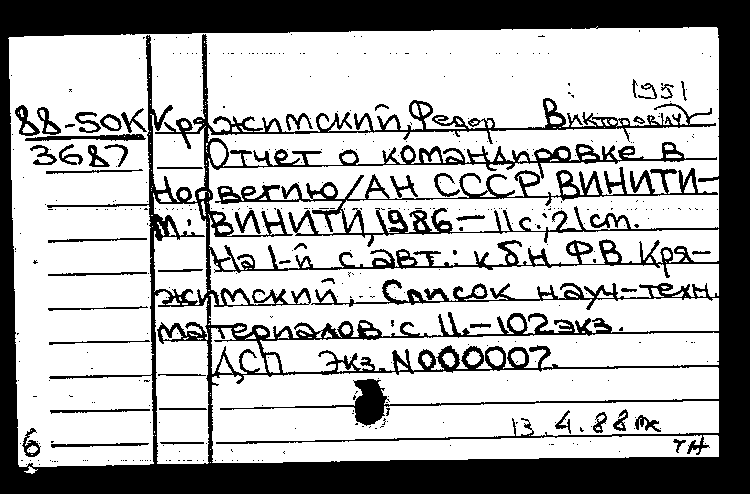 1951
88-50К Кряжимский, Федор Викторович
3687 Отчет о командировке в
Норвегию/АН СССР, ВИНИТИ-
М.: ВИНИТИ, 1986.- 11 с.; 21 см.
На 1-й с. авт.: к.б.н. Ф.В. Кря-
жимский, Список науч-техн.
материалов: с. 11.-102 экз.
ДСП Экз. N000007.
13.4.88
6 ТН